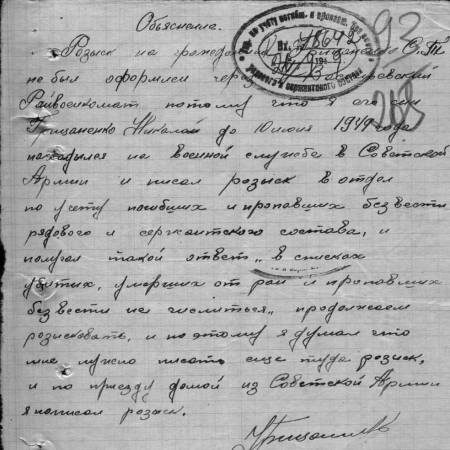 Объяснение.
Розыск на гражданина Грищенко С.П.
не был оформлен через
Райвоенкомат потому что я его сын
Грищаненко Николай до 10 июня 1949 года
находился на военной службе в Советской
Армии и писал розыск в отдел
по учету погибших и пропавших без вести
рядового и сержантского состава, и
получал такой ответ „в списках
убитих, умерших от ран и пропавших
без вести не числиться„ продолжаем
розысковать, и по этому я думал что
мне нужно писать еще туда розыск,
и по приезду домой из Советской Армии
я написал розыск.